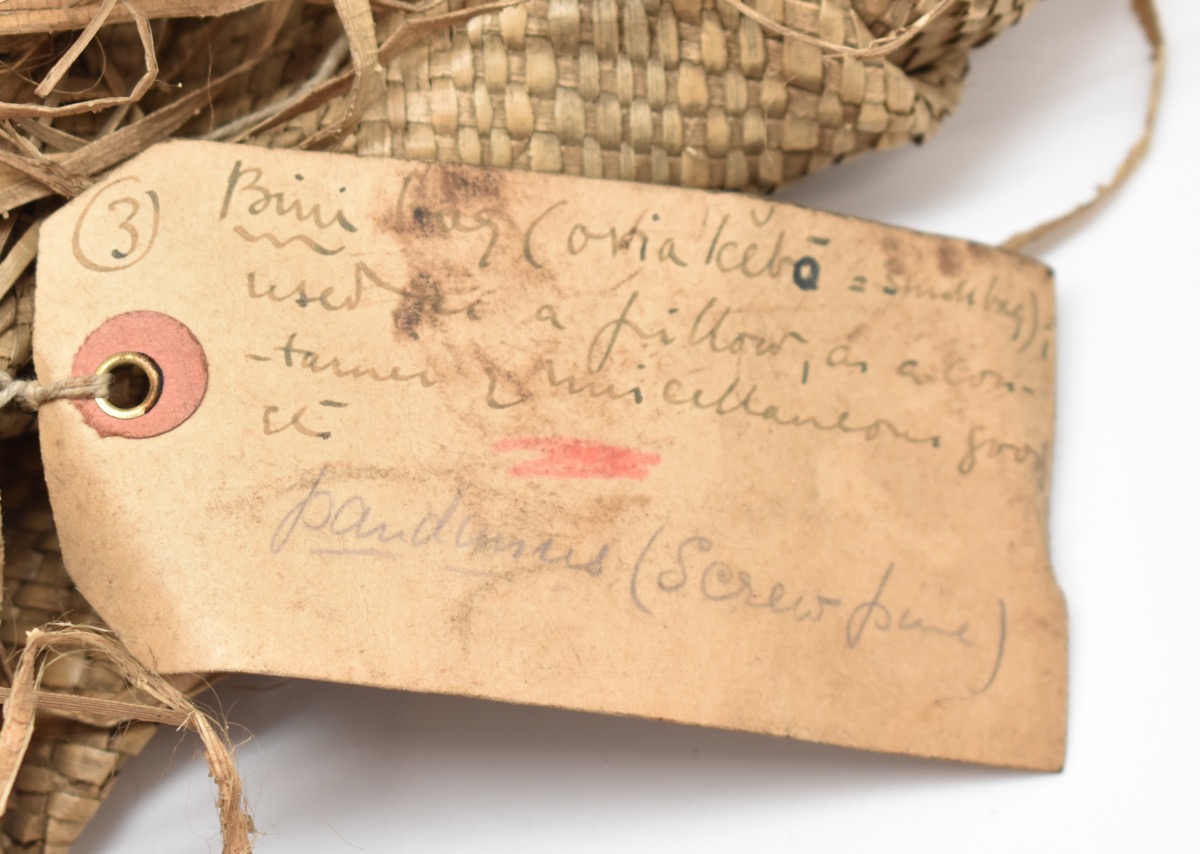 ③ Bini bag (ovia kĕbō = small bag);
used as a pillow, as a con-
-tainer of miscellaneous goods
etc.
pandanus (Screw pine)